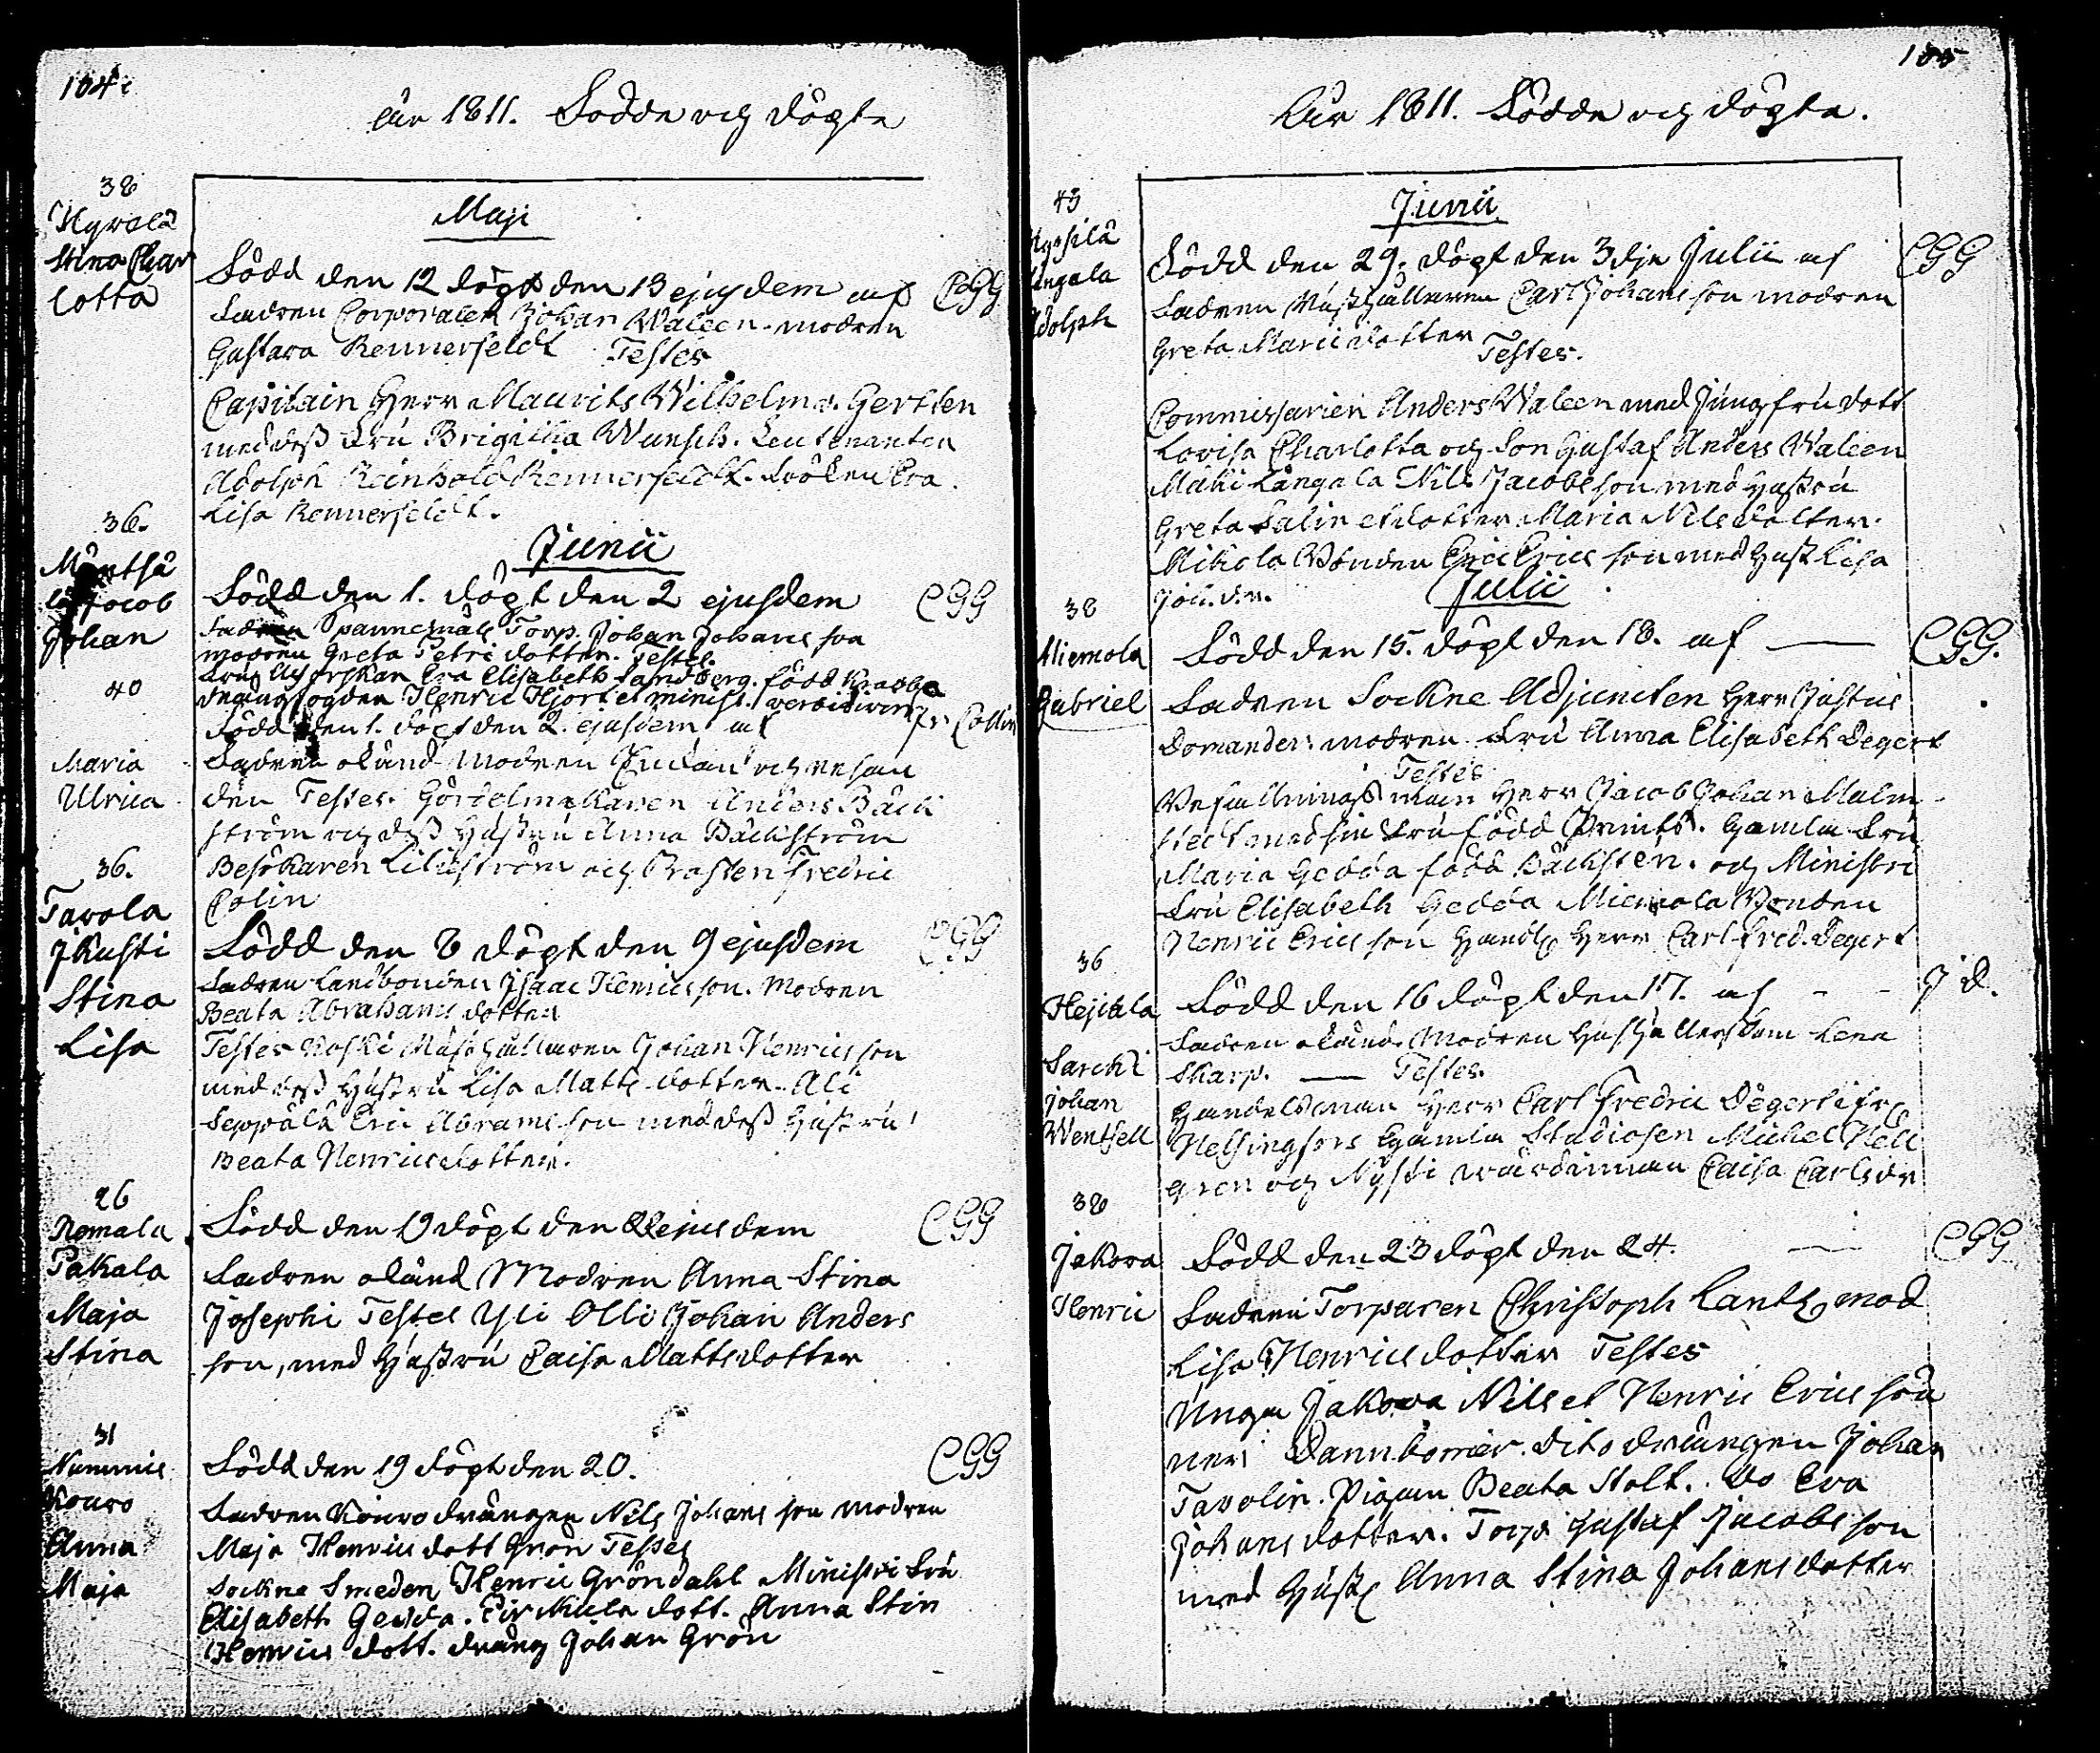 104
åår 1811. Födde och döpte
38
Hyrälä
Stina Char
lotta
Maji
Född den 12 döpt den 13 ejusdem af CGG
Fadren Corporalen Johan Waleen modren
Gustava Rennerfeldt Testes
Capitain Herr Maurits Wilhelm v. Gertten
med dess Fru Brigitha Wunsch. Leutenanten
Adolph Reinhold Rennerfeldt. Fröken Eva
Lisa Rennerfeldt.
Junii
36.
Jacob
Johan
Född den 1. döpt den 2 ejusdem CGG
Fadren Torp. Johan Johans son
modren Greta Petri dotter. Testes.
Eva Elisabeth Sandberg. född
Henric Hjort et minist.
40
Maria
Ulrica
Född den 1. döpt den 2. ejusdem af Fr Collin
Fadren okänd modren
den Testes. Gördelmakaren Anders Bäck
ström och dess Hustru Anna Bäckström
Besökaren Liliström och Prosten Fredric
Colin
36.
Tavola
Jkusti
Stina
Lisa
Född den 8 döpt den 9 ejusdem CGG
Fadren Landbonden Isaac Henrics son. Modren
Beata Abrahams dotter
Testes Koski Måshållaren Johan Henrics son
med dess Hustru Lisa Matts dotter. Ali
Seppälä Eric Abrams son med dess Hustru
Beata Henrics dotter.
26
Komala
Pakala
Maja
Stina
Född den 19 döpt den 22 ejusdem CGG
Fadren okänd Modren Anna Stina
Josephi Testes Yli Olli Johan Anders
son, med Hustru Caisa Matts dotter
31
Nummis
Kouro
Anna
Maja
Född den 19 döpt den 20. CGG
Fadren Kouro drängen Nils Johans son modren
Maja Henrics dott Grön Testes
Sockne Smeden Henric Gröndahl Ministri Fru
Elisabeth Gedda. dott. Anna Stin
Henrics dott. dräng Johan Grön
105
Åår 1811. Födde och döpte.
43
Adolph
Junii
Född den 29. döpt den 3dje Julii af CGG
Fadren Måshållaren Carl Johans son modren
Greta Marii dotter Testes.
Commissarien Anders Waleen med Jungfru dott
Lovisa Charlotta och Son Gustaf Anders Waleen
Mäki Långala Nils Jacobs son med Hustru
Greta Salin et dotter Maria Nils dotter.
Mikola Bonden Eric Erics son med Hust Lisa
Joh. dr.
Julii
38
Miemola
Gabriel
Född den 15. döpt den 18. af — CGG.
Fadren Sockne Adjuncten Herr Justus
Domander. modren Fru Anna Elisabeth Degert
Testes
Befallningsman Herr Jacob Johan Malm
sted med sin Fru född Printz. Gamla Fru
Maria Gedda född Bäcksten. och Ministri
Fru Elisabeth Gedda Miemola Bonden
Henric Erics son Handl. Herr Carl Fred. Degert
36
Hejckla
Sarcki
Johan
Wentsell
Född den 16 döpt den 17. af - - J D.
Fadren okänd. Modren Hushållerskan Lena
Skarp. — Testes.
Handelsman Herr Carl Fredric Degert ifr.
Helsingfors Gamla Studiosen Michel Hell
gren och Nysti värdinnan Caisa Carlsdr
38
Jakova
Henric
Född den 23 döpt den 24. — CGG
Fadren Torparen Christoph Lantz mod
Lisa Henrics dotter Testes
Unga Jakova Nils et Henric Erics söö
ner Dannbomer. dito drängen Johan
Tavolin. Pigan Beata Stolt. Do Eva
Johans dotter. Torp. Gustaf Jacobs son
med Hust. Anna Stina Johans dotter